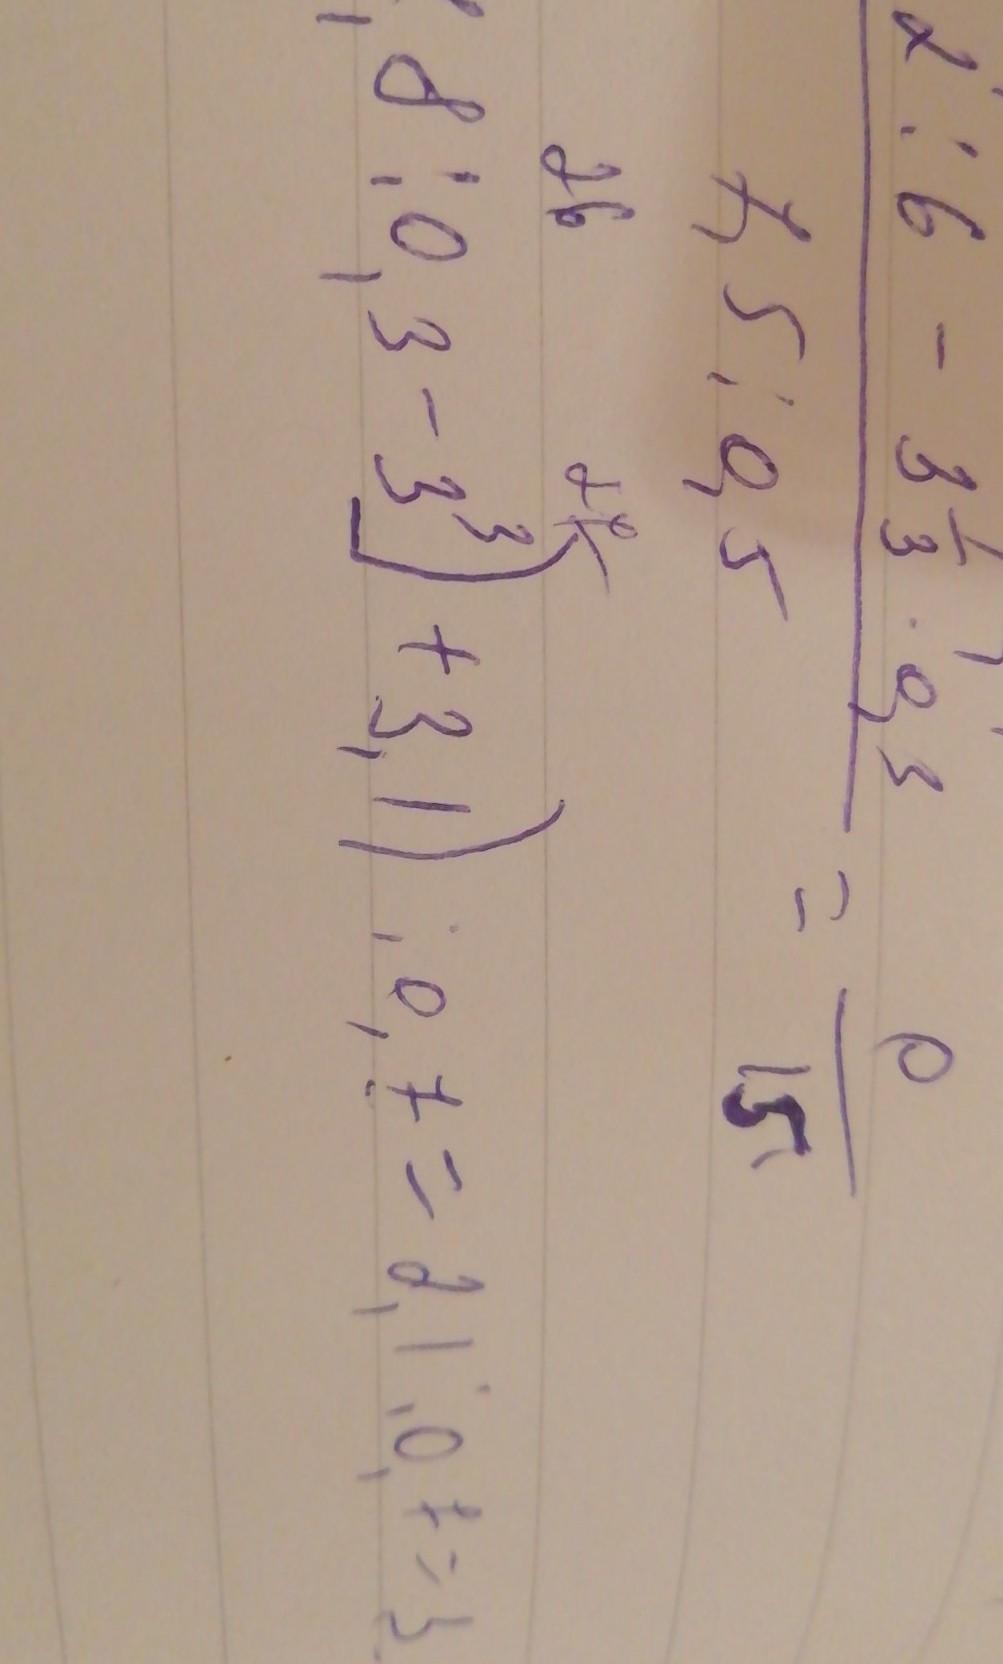 2 : 6 - 3 1/3 · 0,3
= 0/15
7,5 : 0,5
26
,8 : 0,3 - 3³) + 3,1) : 0,7 = 2,1 : 0,7 = 3